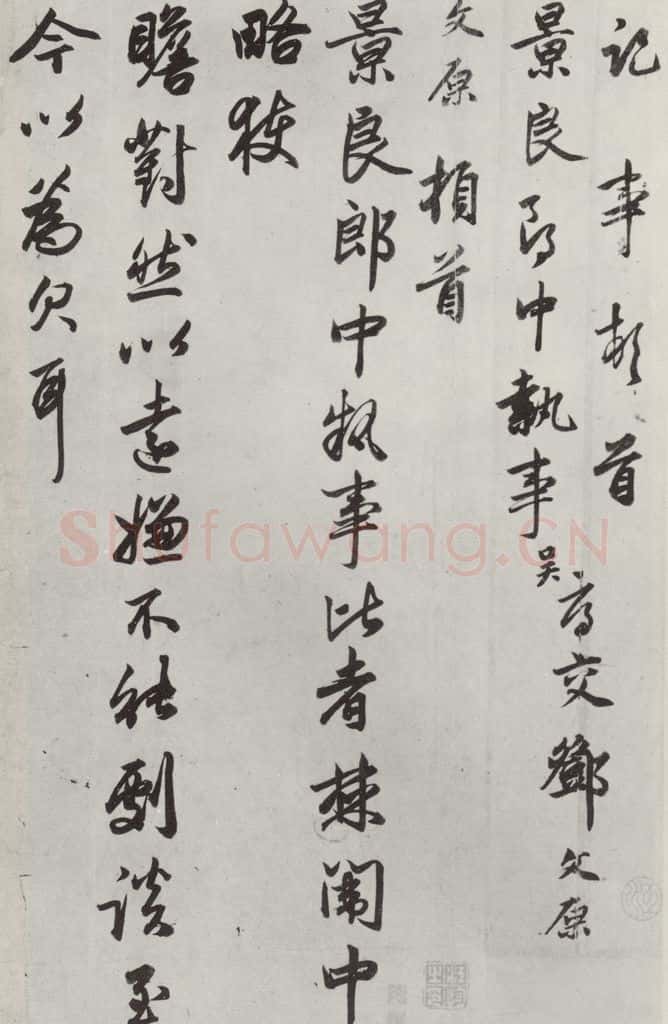 記事頓首
景良郎中執事吴言交鄧文原
文原頓首
景良郎中執事比者棘闈中
略獲
瞻對然以遠嫌不能劇談至
今以為欠耳
Shufawang.CN